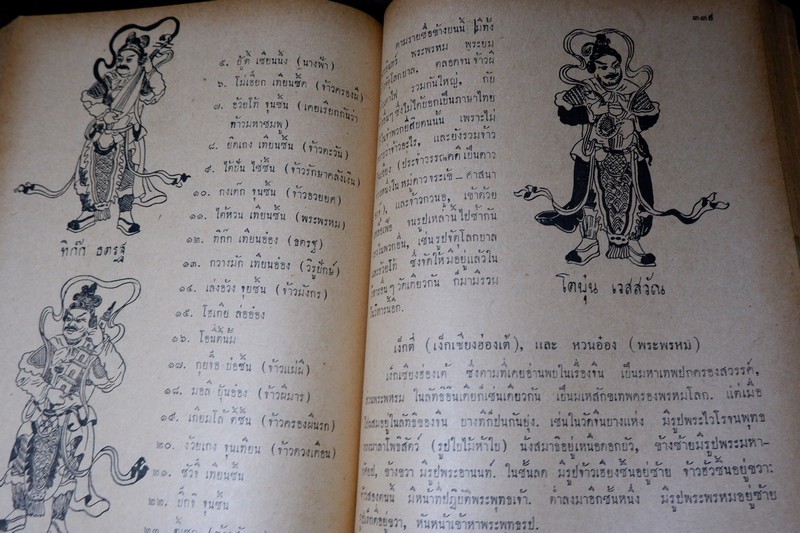 ๕. ฮู้ตี้ เซียนนึ้ง (นางฟ้า)
๖. โม่เฮ็ยก เทียนซัด (จ้าวครองผี)
๗. อ้วยโท้ จุนซัน (เคยเรียกกันว่า
ท้าวมหาชมพู)
๘. ยิดเกง เทียนซัน (จ้าวตะวัน)
๙. ไต้ยั่น ไซ่ซัน (จ้าวรักษาคลังเงิน)
๑๐. กงเต๊ก จุนซัน (จ้าวอวยยศ)
๑๑. ไต้หวน เทียนซัน (พระพรหม)
๑๒. ทิก๊ก เทียนอ๋อง (ธตรฐ)
๑๓. กวางมัก เทียนอ๋อง (วิรูปักษ์)
๑๔. เล่งอ๋วง จุยซัน (จ้าวมังกร)
๑๕. โซเกีย ล่ออ๋อง
๑๖. โอนี่ตันมี้
๑๗. กุยจื้อ ป้อซัน (จ้าวแม่ผี)
๑๘. มอลี ยุ้นอ๋อง (จ้าวผีมาร)
๑๙. เกียมโล้ ตั้ซัน (จ้าวครองผีนรก)
๒๐. ง้วยเกง จุนเทียน (จ้าวดวงเดือน)
๒๑. ซัวจี้ เทียนซัน
๒๒. บิ๊กจิ จุนซัน
ทิก๊ก ธตรฐ
๓๓๕
ตามรายชื่อข้างบนนี้ มีทั้ง
พระพรหม พระยม
โลกบาล, ตลอดจนจ้าวผี
รวมกันใหญ่, กับ
ซึ่งไม่ได้บอกเป็นภาษาไทย
เพราะไม่
จ้าวอะไร, และยังรวมจ้าว
(ประจำวรรณคดีเป็นดาว
ในหมู่ดาวจระเข้ – ศาสนา
และจ้าวกวนอู, เข้าด้วย
จนรูปเหล่านี้ไปซ้ำกัน
เช่นรูปจัตุโลกบาล
ซึ่งจัดให้มีอยู่แล้วใน
ๆ วัดเดียวกัน ก็มามีรวม
โตบุ๋น เวสสวัณ
เง็กตี่ (เง็กเซียงฮ่องเต้), และ หวนอ๋อง (พระพรหม)
เง็กเซียงฮ่องเต้ ซึ่งตามที่เคยอ่านพบในเรื่องจีน เป็นมหาเทพปกครองสวรรค์,
พรหม ในลัทธิอินเดียก็เช่นเดียวกัน เป็นมเหสักขเทพครองพรหมโลก. แต่เมื่อ
อยู่ในลัทธิของจีน บางทีก็ปนกันยุ่ง. เช่นในวัดจีนบางแห่ง มีรูปพระไวโรจนพุทธ
โพธิสัตว์ (รูปใยไม้ห้าใย) นั่งสมาธิอยู่เหนือดอกบัว, ข้างซ้ายมีรูปพระมหา-
ข้างขวา มีรูปพระอานนท์. ในชั้นลด มีรูปจ้าวเฮียงซันอยู่ซ้าย จ้าวฮั้วซันอยู่ขวา:
สองตนนี้ มีหน้าที่ปฏิบัติพระพุทธเจ้า. ต่ำลงมาอีกชั้นหนึ่ง มีรูปพระพรหมอยู่ซ้าย
อยู่ขวา, หันหน้าเข้าหาพระพุทธรูป.